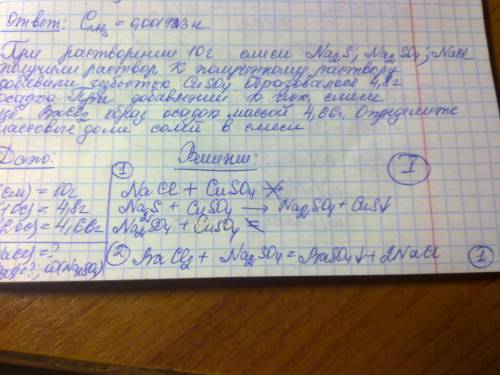 Ответ: C = 0,001923 н
При растворении 10г смеси Na2S; Na2SO4; NaCl
получили раствор. К полученному раствору
добавили избыток CuSO4. Образовалось 4,8г
осадка. При добавлении к смеси
BaCl2 образ осадок массой 4,66г. Определите
массовые доли солей в смеси
Дано: Решение: I
(см) = 10г ① NaCl + CuSO4
(1ос) = 4,8г Na2S + CuSO4 → Na2SO4 + CuS↓
(2ос) = 4,66г Na2SO4 + CuSO4
② BaCl2 + Na2SO4 = BaSO4↓ + 2NaCl ①